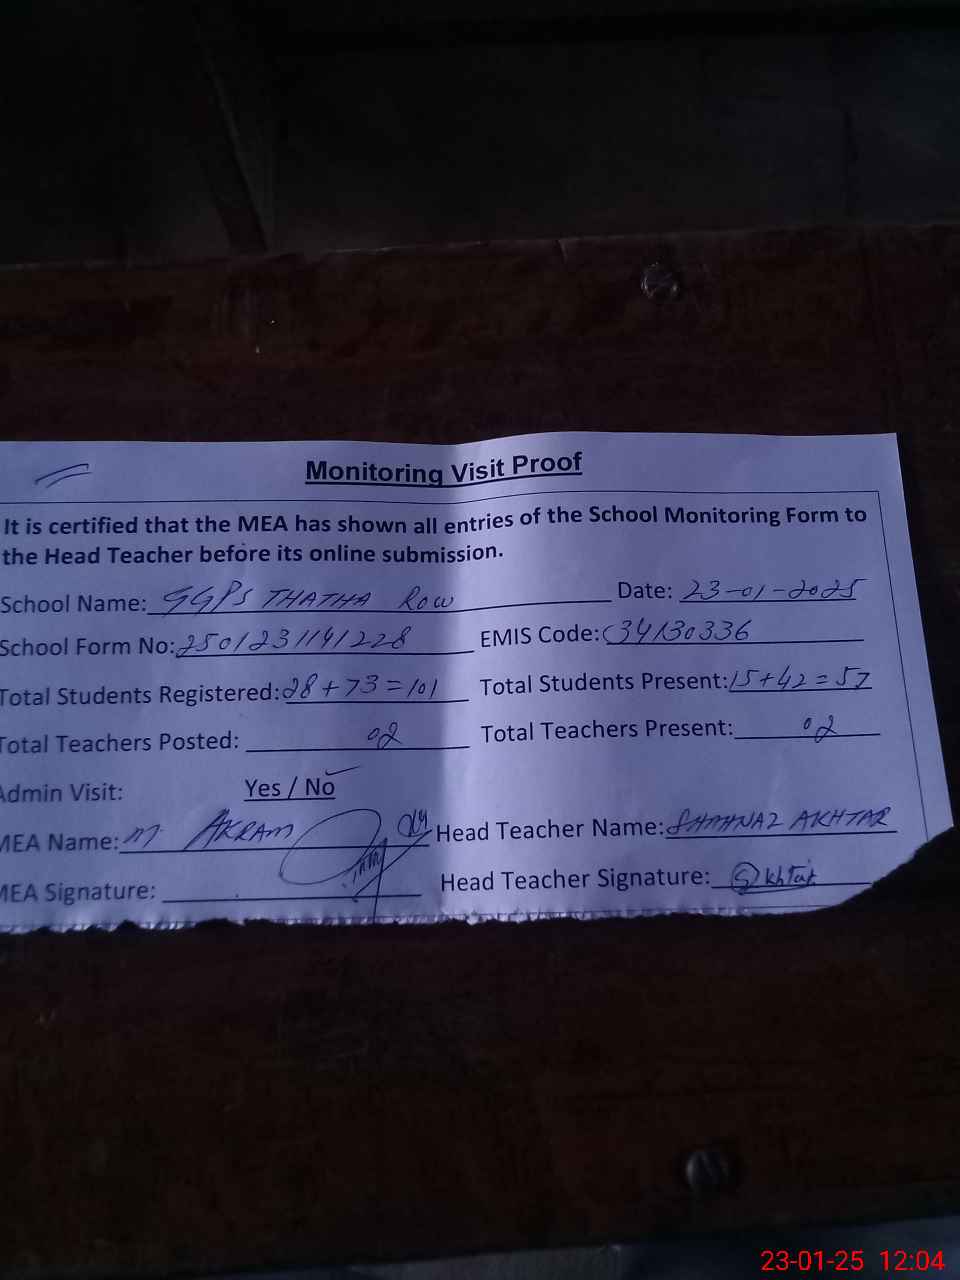 Monitoring Visit Proof
It is certified that the MEA has shown all entries of the School Monitoring Form to
the Head Teacher before its online submission.
School Name: GGPS THATHA Row Date: 23-01-2025
School Form No: 2501231141228 EMIS Code: 34130336
Total Students Registered: 28+73=101 Total Students Present: 15+42=57
Total Teachers Posted: 02 Total Teachers Present: 02
Admin Visit: Yes / No
MEA Name: M. AKRAM Head Teacher Name: SHAHNAZ AKHTAR
MEA Signature: Head Teacher Signature: S Akhtar
23-01-25 12:04